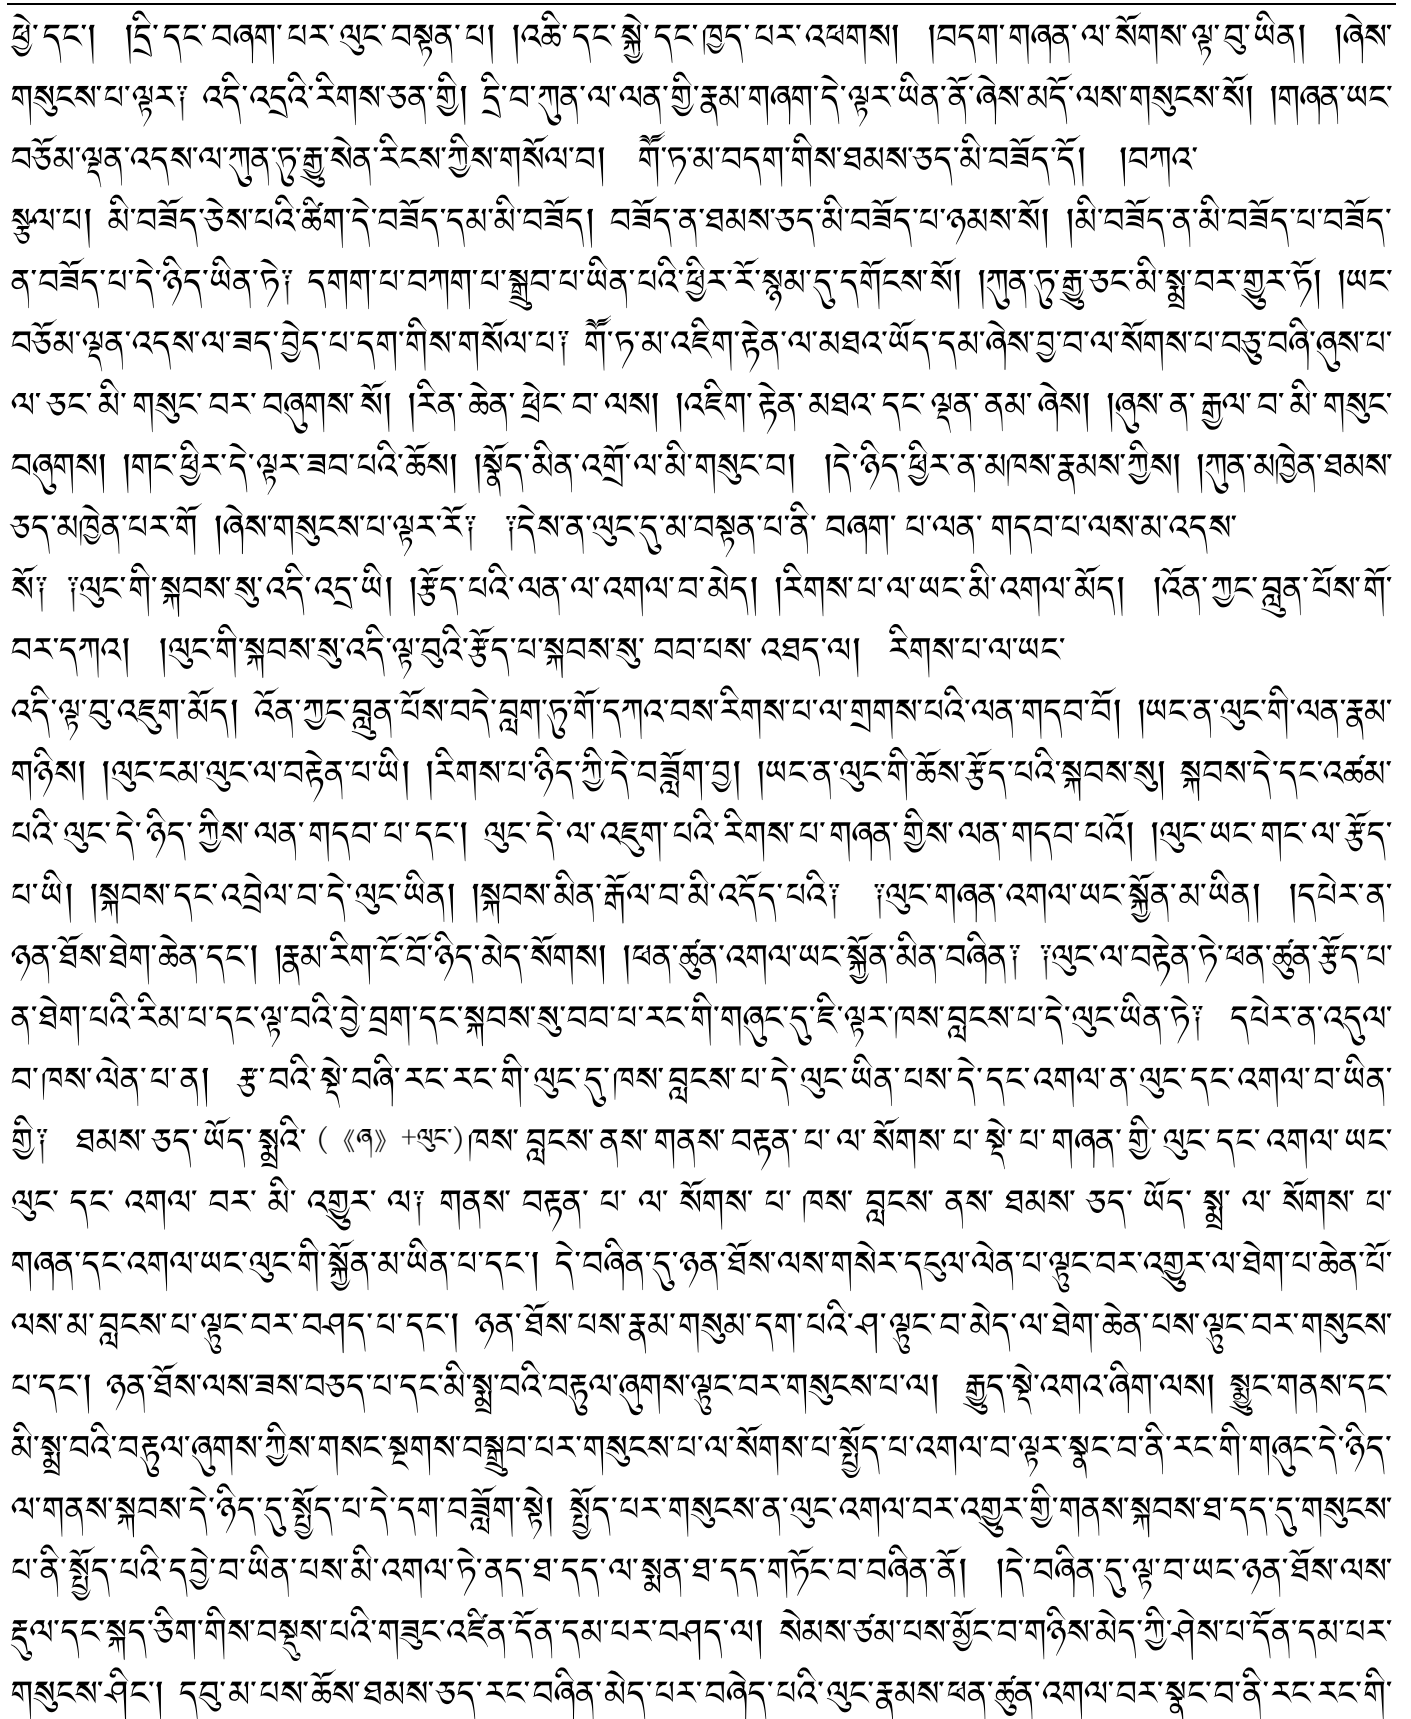 ཕྱེ་དང་། །དྲི་དང་བཞག་པར་ལུང་བསྟན་པ། །འཆི་དང་སྐྱེ་དང་ཁྱད་པར་འཕགས། །བདག་གཞན་ལ་སོགས་ལྟ་བུ་ཡིན། །ཞེས་
གསུངས་པ་ལྟར༑ འདི་འདྲའི་རིགས་ཅན་གྱི། དྲི་བ་ཀུན་ལ་ལན་གྱི་རྣམ་གཞག་དེ་ལྟར་ཡིན་ནོ་ཞེས་མདོ་ལས་གསུངས་སོ། །གཞན་ཡང་
བཅོམ་ལྡན་འདས་ལ་ཀུན་ཏུ་རྒྱུ་སེན་རིངས་ཀྱིས་གསོལ་བ། གཽ་ཏ་མ་བདག་གིས་ཐམས་ཅད་མི་བཟོད་དོ། །བཀའ་
སྩལ་པ། མི་བཟོད་ཅེས་པའི་ཚིག་དེ་བཟོད་དམ་མི་བཟོད། བཟོད་ན་ཐམས་ཅད་མི་བཟོད་པ་ཉམས་སོ། །མི་བཟོད་ན་མི་བཟོད་པ་བཟོད་
ན་བཟོད་པ་དེ་ཉིད་ཡིན་ཏེ༑ དགག་པ་བཀག་པ་སྒྲུབ་པ་ཡིན་པའི་ཕྱིར་རོ་སྙམ་དུ་དགོངས་སོ། །ཀུན་ཏུ་རྒྱུ་ཅང་མི་སྨྲ་བར་གྱུར་ཏོ། །ཡང་
བཅོམ་ལྡན་འདས་ལ་ཟད་བྱེད་པ་དག་གིས་གསོལ་པ༑ གཽ་ཏ་མ་འཇིག་རྟེན་ལ་མཐའ་ཡོད་དམ་ཞེས་བྱ་བ་ལ་སོགས་པ་བཅུ་བཞི་ཞུས་པ་
ལ་ཅང་མི་གསུང་བར་བཞུགས་སོ། །རིན་ཆེན་ཕྲེང་བ་ལས། །འཇིག་རྟེན་མཐའ་དང་ལྡན་ནམ་ཞེས། །ཞུས་ན་རྒྱལ་བ་མི་གསུང་
བཞུགས། །གང་ཕྱིར་དེ་ལྟར་ཟབ་པའི་ཆོས། །སྣོད་མིན་འགྲོ་ལ་མི་གསུང་བ། །དེ་ཉིད་ཕྱིར་ན་མཁས་རྣམས་ཀྱིས། །ཀུན་མཁྱེན་ཐམས་
ཅད་མཁྱེན་པར་གོ །ཞེས་གསུངས་པ་ལྟར་རོ༑ ༑དེས་ན་ལུང་དུ་མ་བསྟན་པ་ནི་ བཞག་ པ་ལན་ གདབ་པ་ལས་མ་འདས་
སོ༑ ༑ལུང་གི་སྐབས་སུ་འདི་འདྲ་ཡི། །རྩོད་པའི་ལན་ལ་འགལ་བ་མེད། །རིགས་པ་ལ་ཡང་མི་འགལ་མོད། །འོན་ཀྱང་བླུན་པོས་གོ་
བར་དཀའ། །ལུང་གི་སྐབས་སུ་འདི་ལྟ་བུའི་རྩོད་པ་སྐབས་སུ་ བབ་པས་ འཐད་ལ། རིགས་པ་ལ་ཡང་
འདི་ལྟ་བུ་འཇུག་མོད། འོན་ཀྱང་བླུན་པོས་བདེ་བླག་ཏུ་གོ་དཀའ་བས་རིགས་པ་ལ་གྲགས་པའི་ལན་གདབ་བོ། །ཡང་ན་ལུང་གི་ལན་རྣམ་
གཉིས། །ལུང་ངམ་ལུང་ལ་བརྟེན་པ་ཡི། །རིགས་པ་ཉིད་ཀྱི་དེ་བཟློག་བྱ། །ཡང་ན་ལུང་གི་ཆོས་རྩོད་པའི་སྐབས་སུ། སྐབས་དེ་དང་འཚམ་
པའི་ལུང་དེ་ཉིད་ཀྱིས་ལན་གདབ་པ་དང་། ལུང་དེ་ལ་འཇུག་པའི་རིགས་པ་གཞན་གྱིས་ལན་གདབ་པའོ། །ལུང་ཡང་གང་ལ་རྩོད་
པ་ཡི། །སྐབས་དང་འབྲེལ་བ་དེ་ལུང་ཡིན། །སྐབས་མིན་རྒོལ་བ་མི་འདོད་པའི༑ ༑ལུང་གཞན་འགལ་ཡང་སྐྱོན་མ་ཡིན། །དཔེར་ན་
ཉན་ཐོས་ཐེག་ཆེན་དང་། །རྣམ་རིག་ངོ་བོ་ཉིད་མེད་སོགས། །ཕན་ཚུན་འགལ་ཡང་སྐྱོན་མིན་བཞིན༑ ༑ལུང་ལ་བརྟེན་ཏེ་ཕན་ཚུན་རྩོད་པ་
ན་ཐེག་པའི་རིམ་པ་དང་ལྟ་བའི་བྱེ་བྲག་དང་སྐབས་སུ་བབ་པ་རང་གི་གཞུང་དུ་ཇི་ལྟར་ཁས་བླངས་པ་དེ་ལུང་ཡིན་ཏེ༑ དཔེར་ན་འདུལ་
བ་ཁས་ལེན་པ་ན། རྩ་བའི་སྡེ་བཞི་རང་རང་གི་ལུང་དུ་ཁས་བླངས་པ་དེ་ལུང་ཡིན་པས་དེ་དང་འགལ་ན་ལུང་དང་འགལ་བ་ཡིན་
གྱི༑ ཐམས་ཅད་ཡོད་སྨྲའི་ (《ཞ》+ལུང་)ཁས་བླངས་ནས་གནས་བརྟན་པ་ལ་སོགས་པ་སྡེ་པ་གཞན་གྱི་ལུང་དང་འགལ་ཡང་
ལུང་དང་འགལ་བར་མི་འགྱུར་ལ༑ གནས་བརྟན་པ་ལ་སོགས་པ་ཁས་བླངས་ནས་ཐམས་ཅད་ཡོད་སྨྲ་ལ་སོགས་པ་
གཞན་དང་འགལ་ཡང་ལུང་གི་སྐྱོན་མ་ཡིན་པ་དང་། དེ་བཞིན་དུ་ཉན་ཐོས་ལས་གསེར་དངུལ་ལེན་པ་ལྟུང་བར་འགྱུར་ལ་ཐེག་པ་ཆེན་པོ་
ལས་མ་བླངས་པ་ལྟུང་བར་བཤད་པ་དང་། ཉན་ཐོས་པས་རྣམ་གསུམ་དག་པའི་ཤ་ལྟུང་བ་མེད་ལ་ཐེག་ཆེན་པས་ལྟུང་བར་གསུངས་
པ་དང་། ཉན་ཐོས་ལས་ཟས་བཅད་པ་དང་མི་སྨྲ་བའི་བརྟུལ་ཞུགས་ལྟུང་བར་གསུངས་པ་ལ། རྒྱུད་སྡེ་འགའ་ཞིག་ལས། སྨྱུང་གནས་དང་
མི་སྨྲ་བའི་བརྟུལ་ཞུགས་ཀྱིས་གསང་སྔགས་བསྒྲུབ་པར་གསུངས་པ་ལ་སོགས་པ་སྤྱོད་པ་འགལ་བ་ལྟར་སྣང་བ་ནི་རང་གི་གཞུང་དེ་ཉིད་
ལ་གནས་སྐབས་དེ་ཉིད་དུ་སྤྱོད་པ་དེ་དག་བཟློག་སྟེ། སྤྱོད་པར་གསུངས་ན་ལུང་འགལ་བར་འགྱུར་གྱི་གནས་སྐབས་ཐ་དད་དུ་གསུངས་
པ་ནི་སྤྱོད་པའི་དབྱེ་བ་ཡིན་པས་མི་འགལ་ཏེ་ནད་ཐ་དད་ལ་སྨན་ཐ་དད་གཏོང་བ་བཞིན་ནོ། །དེ་བཞིན་དུ་ལྟ་བ་ཡང་ཉན་ཐོས་ལས་
རྡུལ་དང་སྐད་ཅིག་གིས་བསྡུས་པའི་གཟུང་འཛིན་དོན་དམ་པར་བཤད་ལ། སེམས་ཙམ་པས་མྱོང་བ་གཉིས་མེད་ཀྱི་ཤེས་པ་དོན་དམ་པར་
གསུངས་ཤིང་། དབུ་མ་པས་ཆོས་ཐམས་ཅད་རང་བཞིན་མེད་པར་བཞེད་པའི་ལུང་རྣམས་ཕན་ཚུན་འགལ་བར་སྣང་བ་ནི་རང་རང་གི་